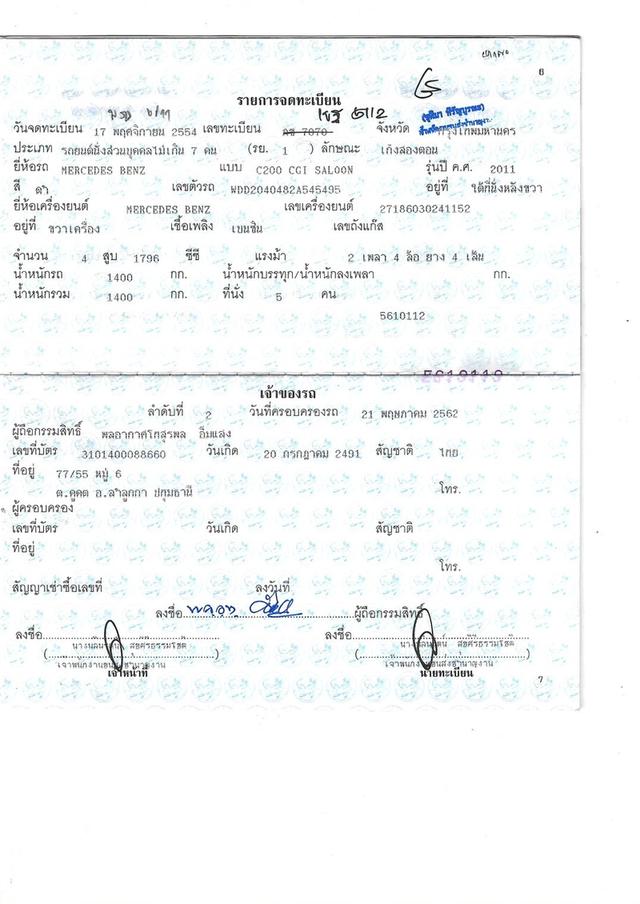 6
รายการจดทะเบียน
วันจดทะเบียน 17 พฤศจิกายน 2554 เลขทะเบียน 7070 จังหวัด กรุงเทพมหานคร
ประเภท รถยนต์นั่งส่วนบุคคลไม่เกิน 7 คน (รย. 1 ) ลักษณะ เก๋งสองตอน
ยี่ห้อรถ MERCEDES BENZ แบบ C200 CGI SALOON รุ่นปี ค.ศ. 2011
สี ดำ เลขตัวรถ WDD2040482A545495 อยู่ที่ ใต้ที่นั่งหลังขวา
ยี่ห้อเครื่องยนต์ MERCEDES BENZ เลขเครื่องยนต์ 27186030241152
อยู่ที่ ขวาเครื่อง เชื้อเพลิง เบนซิน เลขถังแก๊ส
จำนวน 4 สูบ 1796 ซีซี แรงม้า 2 เพลา 4 ล้อ ยาง 4 เส้น
น้ำหนักรถ 1400 กก. น้ำหนักบรรทุก/น้ำหนักลงเพลา กก.
น้ำหนักรวม 1400 กก. ที่นั่ง 5 คน
5610112
เจ้าของรถ
ลำดับที่ 2 วันที่ครอบครองรถ 21 พฤษภาคม 2562
ผู้ถือกรรมสิทธิ์ พลอากาศโทสุรพล อิ่มแสง
เลขที่บัตร 3101400088660 วันเกิด 20 กรกฎาคม 2491 สัญชาติ ไทย
ที่อยู่ 77/55 หมู่ 6
ต.คูคต อ.ลำลูกกา ปทุมธานี โทร.
ผู้ครอบครอง
เลขที่บัตร วันเกิด สัญชาติ
ที่อยู่
โทร.
สัญญาเช่าซื้อเลขที่ ลงวันที่
ลงชื่อ ผู้ถือกรรมสิทธิ์
ลงชื่อ ลงชื่อ
สุขศิริธรรมโชติ สุขศิริธรรมโชติ
เจ้าหน้าที่ นายทะเบียน
7